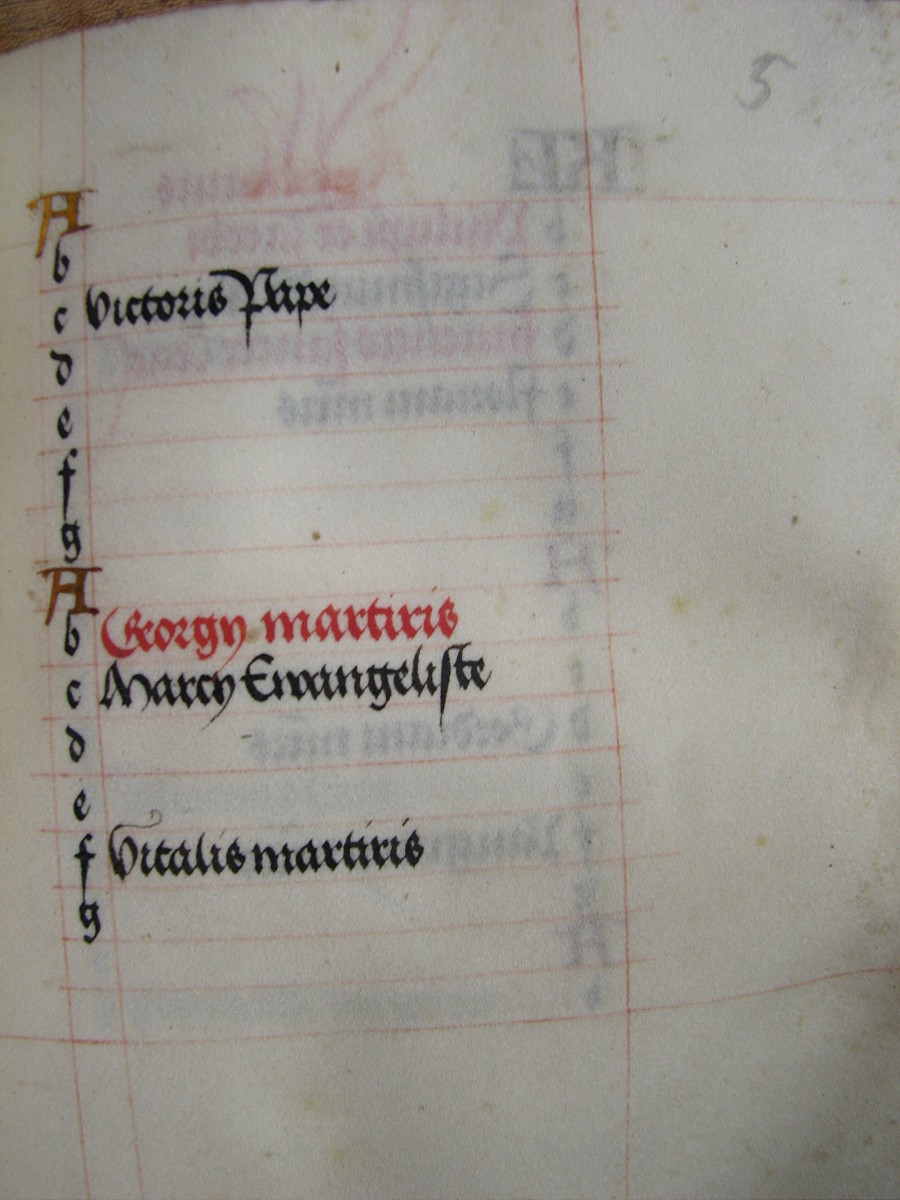 5
A
b
c Victoris Pape
d
e
f
g
A
b Georgy martiris
c Marcy Ewangeliste
d
e
f Vitalis martiris
g